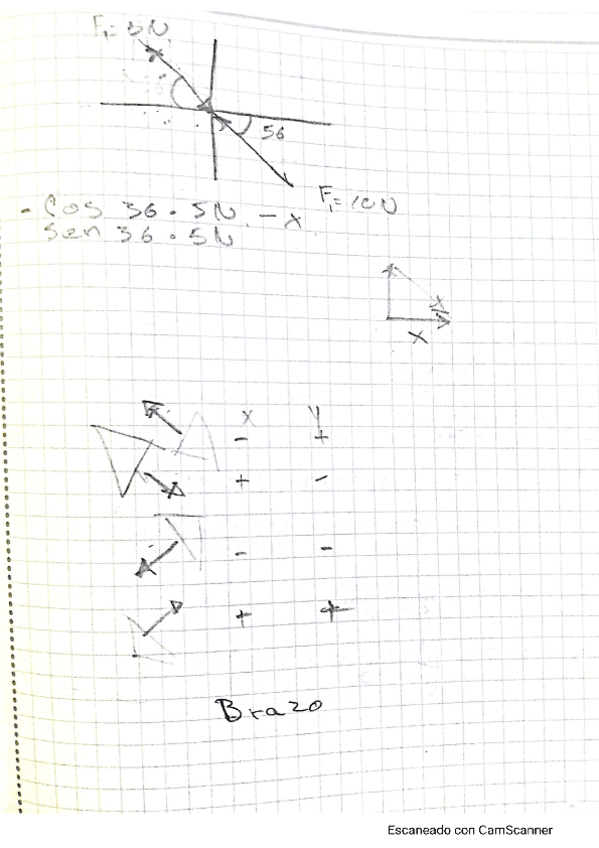 F₁= 5N
56
F₁= 10N
- Cos 36 · 5N - x
Sen 36 · 5N
x
x
x y
- +
+ -
- -
+ +
Brazo
Escaneado con CamScanner